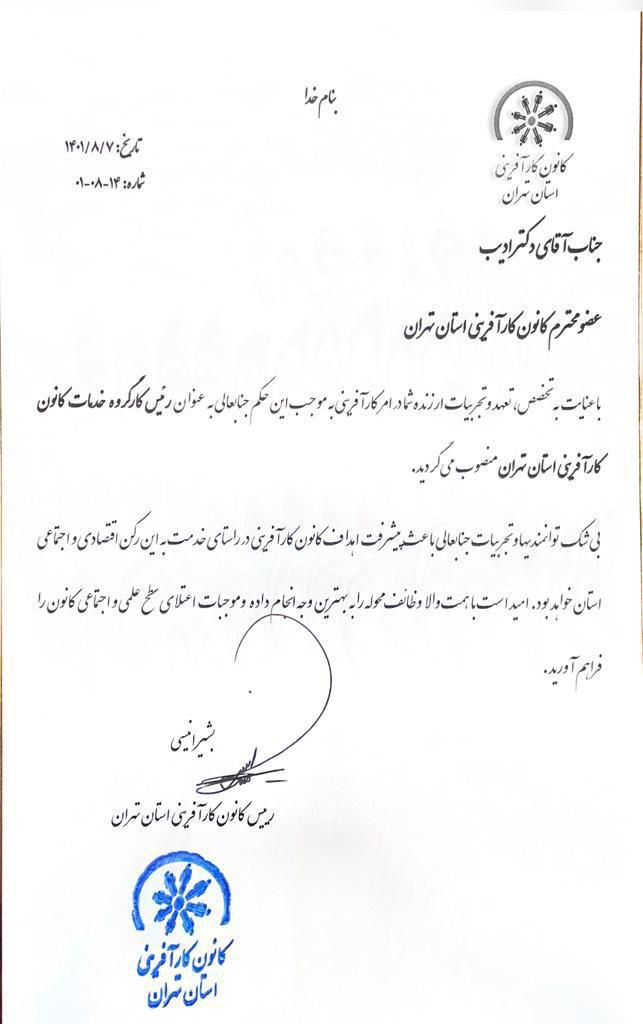 بنام خدا
کانون کارآفرینی
استان تهران
تاریخ: ۱۴۰۱/۸/۷
شماره: ۱۴-۰۸-۰۱
جناب آقای دکتر ادیب
عضو محترم کانون کارآفرینی استان تهران
با عنایت به تخصص، تعهد و تجربیات ارزنده شما در امر کارآفرینی به موجب این حکم جنابعالی به عنوان رئیس کارگروه خدمات کانون
کارآفرینی استان تهران منصوب می گردید.
بی شک توانمندیها و تجربیات جنابعالی باعث پیشرفت اهداف کانون کارآفرینی در راستای خدمت به این رکن اقتصادی و اجتماعی
استان خواهد بود. امید است با همت والا وظائف محوله را به بهترین وجه انجام داده و موجبات اعتلای سطح علمی و اجتماعی کانون را
فراهم آورید.
بشیر انیسی
رییس کانون کارآفرینی استان تهران
کانون کارآفرینی
استان تهران